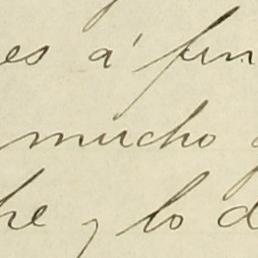 es á fin
mucho
he y lo d